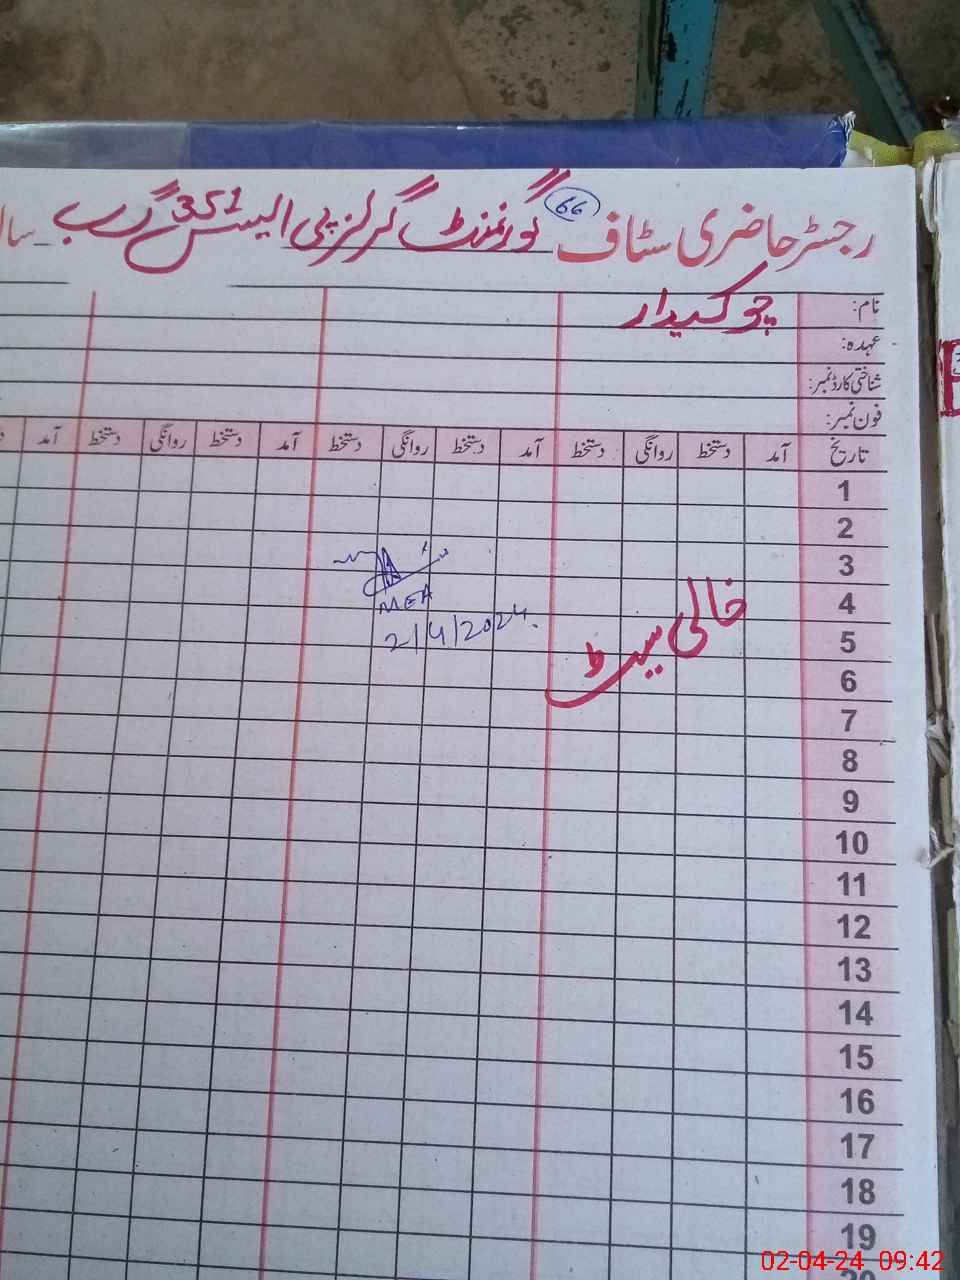 رجسٹر حاضری سٹاف گورنمنٹ گرلز پی ایس 351 گ ب
66
نام: چوکیدار
عہدہ:
شناختی کارڈ نمبر:
فون نمبر:
تاریخ آمد دستخط روانگی دستخط آمد دستخط روانگی دستخط آمد دستخط روانگی دستخط آمد
1
2
3
4
5
6
7
8
9
10
11
12
13
14
15
16
17
18
19
20
خالی سیٹ
MEA
2/4/2024.
02-04-24 09:42